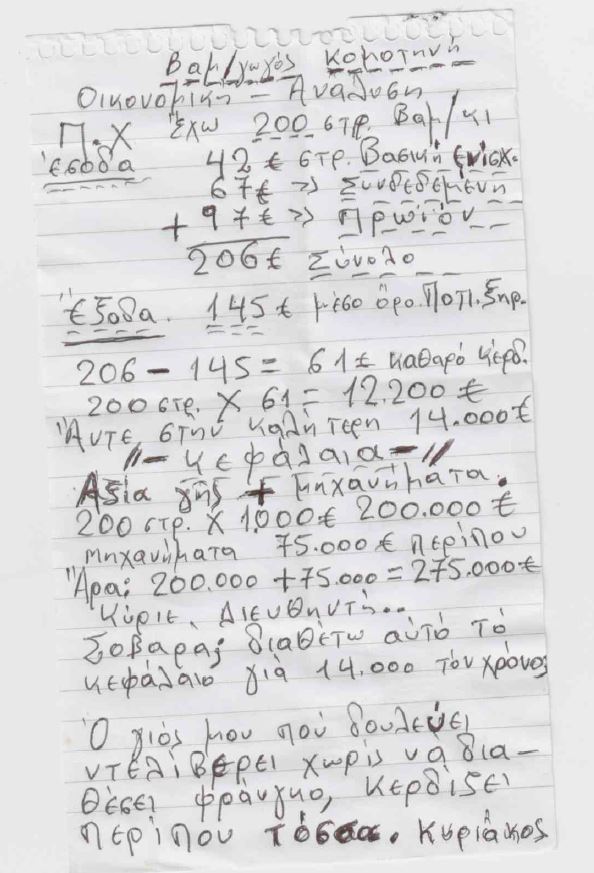 Βαμ/γωγός Κομοτηνή
Οικονομική - Ανάλυση
Π.χ Έχω 200 στρ. Βαμ/κι
έσοδα 42€ στρ. Βασική ενισχ.
67€ » Συνδεδεμένη
+ 97€ » Πρωϊόν
206€ Σύνολο
Έξοδα. 145€ μέσο όρο. Ποτι. Ξηρ.
206 - 145 = 61€ καθαρό κέρδ.
200 στρ. X 61 = 12.200 €
Άντε, στην καλήτερη 14.000€
//- κεφάλαια -//
Αξία γής + μηχανήματα.
200 στρ. X 1000€ 200.000 €
μηχανήματα 75.000€ περίπου
Άρα; 200.000 + 75.000 = 275.000€
Κύριε, Διευθηντή..
Σοβαρα; διαθέτω αύτό τό
κεφάλαιο γιά 14.000 τόν χρόνο;
Ό γιός μου πού δουλεύει
ντελίβερει χωρίς νά δια-
θέσει φράνγκο, κερδίζει
περίπου τόσα. Κυριάκος